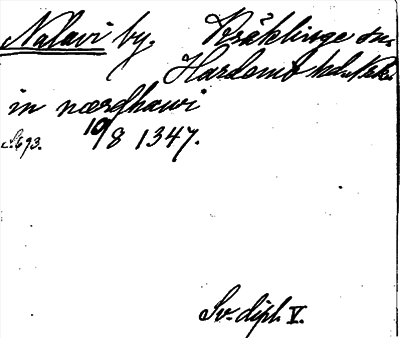 Nalavi by, Kräklinge sn,
Hardemo hd, Nke.
in nærdhawi
S. 693. 10/8 1347.
Sv. dipl. V.